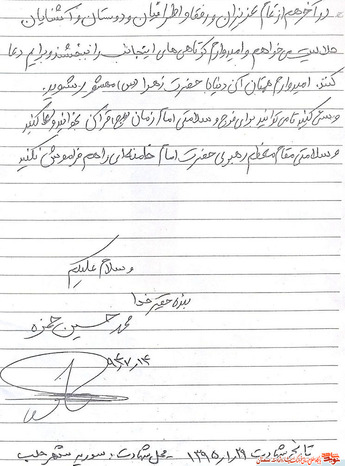 در آخر هم از تمام عزیزان و رفقا و اطرافیان و دوستان و آشنایان
حلالیت می‌خواهم و امیدوارم کوتاهی‌های اینجانب را ببخشند و برایم دعا
کنند. امیدوارم همتان آن دنیا با حضرت زهرا (س) محشور بشوید.
و سعی کنید تا می‌توانید برای فرج و سلامتی امام زمان عج قرآن بخوانید و دعا کنید
و سلامتی مقام معظم رهبری حضرت امام خامنه‌ای را هم فراموش نکنید
و سلام علیکم
بنده حقیر خدا
محمد حسین حمزه
۹۴/۷/۱۴
تاریخ شهادت ۱۳۹۵/۱/۱۹ - محل شهادت: سوریه شهر حلب